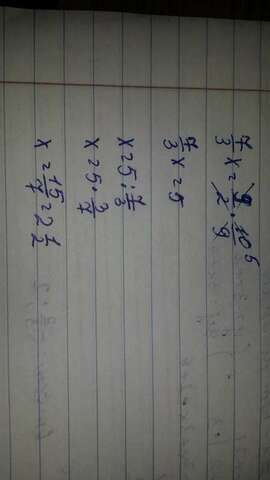 7/3 x = 9/2 · 10/9 5
7/3 x = 5
x = 5 : 7/3
x = 5 · 3/7
x = 15/7 = 2 1/7